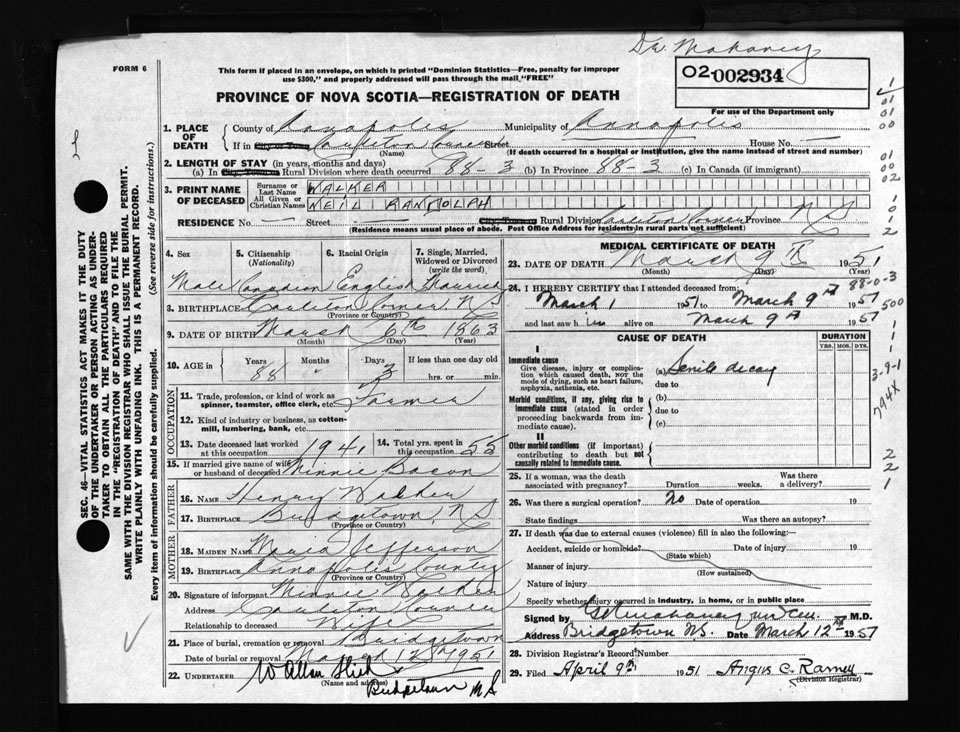 Dr. Mahaney
FORM 6
This form if placed in an envelope, on which is printed "Dominion Statistics—Free, penalty for improper
use $300," and properly addressed will pass through the mail "FREE"
02-002934
PROVINCE OF NOVA SCOTIA—REGISTRATION OF DEATH
For use of the Department only
1. PLACE OF DEATH
County of Annapolis Municipality of Annapolis
If in City or Town Carleton Corner Street House No. —
(Name) (If death occurred in a hospital or institution, give the name instead of street and number)
2. LENGTH OF STAY (in years, months and days)
(a) In City or Town Rural Division where death occurred 88-3 (b) In Province 88-3 (c) In Canada (if immigrant)
3. PRINT NAME OF DECEASED
Surname or Last Name WALKER
All Given or Christian Names NEIL RANDOLPH
RESIDENCE No. — Street — City or Town Rural Division Carleton Corner Province N S
(Residence means usual place of abode. Post Office Address for residents in rural parts not sufficient)
4. Sex 5. Citizenship (Nationality) 6. Racial Origin 7. Single, Married, Widowed or Divorced (write the word)
Male Canadian English Married
8. BIRTHPLACE Carleton Corner N S
(Province or Country)
9. DATE OF BIRTH March 6th 1863
(Month) (Day) (Year)
10. AGE in Years 88 Months " Days 3 If less than one day old hrs. or min.
OCCUPATION
11. Trade, profession, or kind of work as spinner, teamster, office clerk, etc. Farmer
12. Kind of industry or business, as cotton-mill, lumbering, bank, etc.
13. Date deceased last worked at this occupation 1941 14. Total yrs. spent in this occupation 55
15. If married give name of wife or husband of deceased Minnie Bacon
FATHER
16. NAME Henry Walker
17. BIRTHPLACE Bridgetown, N S
(Province or Country)
MOTHER
18. MAIDEN NAME Maria Jefferson
19. BIRTHPLACE Annapolis County
(Province or Country)
20. Signature of informant Minnie Walker
Address Carleton Corner
Relationship to deceased Wife
21. Place of burial, cremation or removal Bridgetown
Date of burial or removal March 12th 1951
22. UNDERTAKER W Allan
(Name and address)
Bridgetown N S
MEDICAL CERTIFICATE OF DEATH
23. DATE OF DEATH March 9th 1951
(Month) (Day) (Year)
24. I HEREBY CERTIFY that I attended deceased from:
March 1 1951 to March 9th 1951
and last saw him alive on March 9th 1951
CAUSE OF DEATH DURATION
YRS. MOS. DYS.
I
Immediate cause
Give disease, injury or complication which caused death, not the mode of dying, such as heart failure, asphyxia, asthenia, etc.
(a) Senile decay
due to
Morbid conditions, if any, giving rise to immediate cause (stated in order proceeding backwards from immediate cause).
(b)
due to
(c)
II
Other morbid conditions (if important) contributing to death but not causally related to immediate cause.
25. If a woman, was the death associated with pregnancy? Duration weeks. Was there a delivery?
26. Was there a surgical operation? No Date of operation 19
State findings Was there an autopsy?
27. If death was due to external causes (violence) fill in also the following:—
Accident, suicide or homicide? Date of injury 19
(State which)
Manner of injury
(How sustained)
Nature of injury
Specify whether injury occurred in industry, in home, or in public place
Signed by M.D.
Address Bridgetown NS. Date March 12th 1951
28. Division Registrar's Record Number
29. Filed April 9th 1951 Angus C. Ramey
(Division Registrar)
SEC. 46—VITAL STATISTICS ACT MAKES IT THE DUTY
OF THE UNDERTAKER OR PERSON ACTING AS UNDER-
TAKER TO OBTAIN ALL THE PARTICULARS REQUIRED
IN THE "REGISTRATION OF DEATH" AND TO FILE THE
SAME WITH THE DIVISION REGISTRAR WHO SHALL ISSUE THE BURIAL PERMIT.
WRITE PLAINLY WITH UNFADING INK. THIS IS A PERMANENT RECORD.
Every item of information should be carefully supplied. (See reverse side for instructions.)
1
01
01
00
01
00
02
1
0
1
2
88-0-3
500
1
1
1
3-9-1
794X
2
2
1